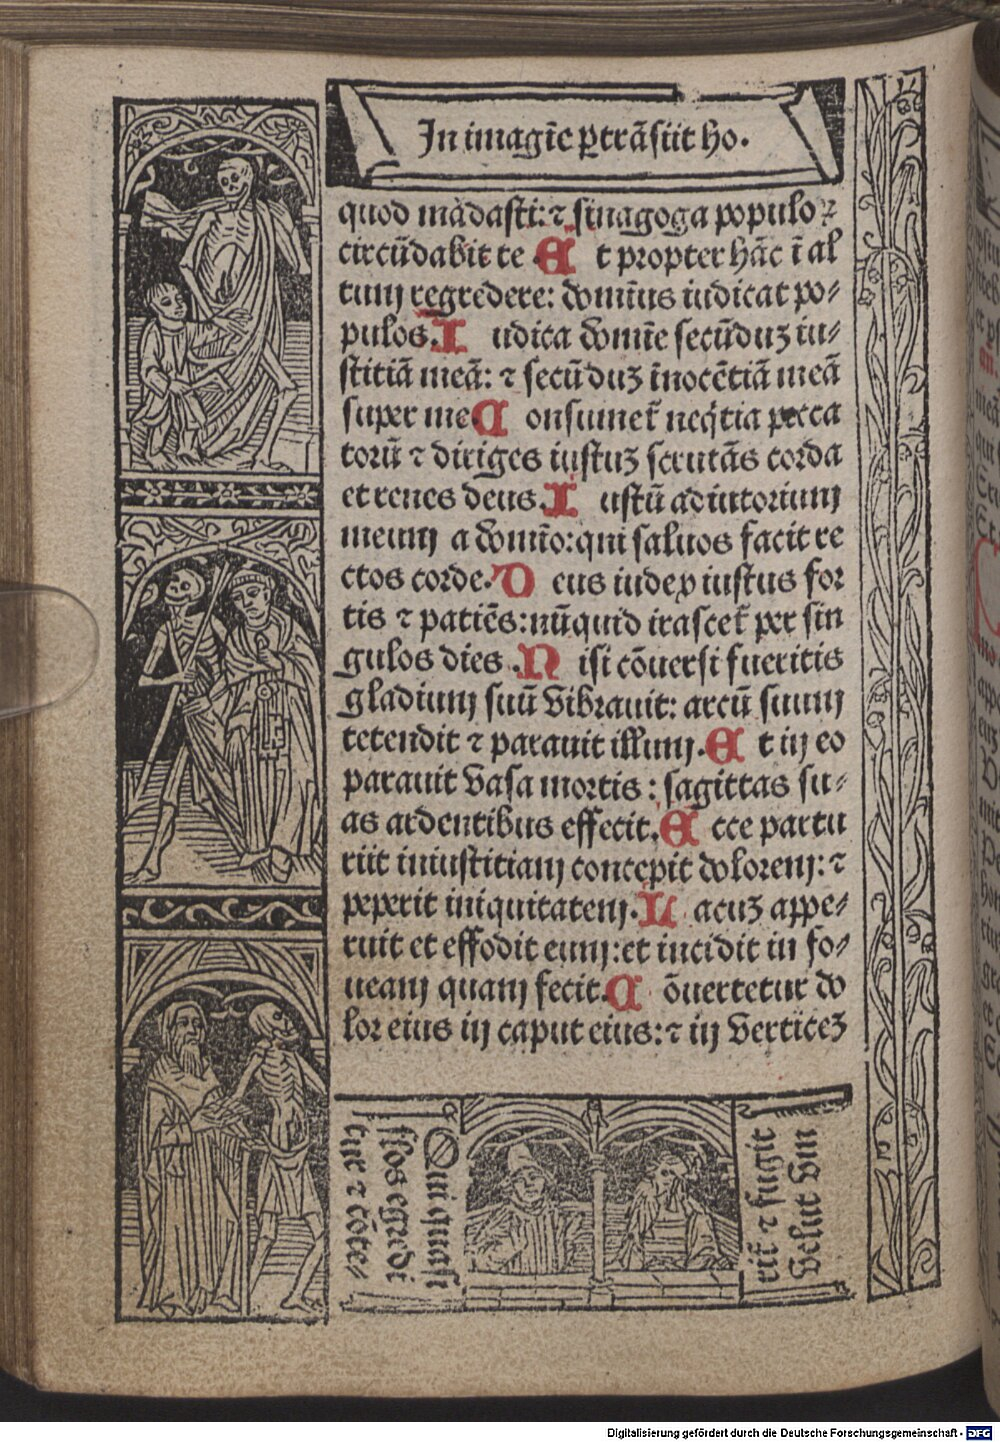 In imagīe ꝑtrāsiit ho.
quod mādasti: ⁊ sinagoga populoꝝ
circūdabit te Et propter hāc ī al
tum regredere: domīus iudicat po⸗
pulos. Iudica domīe secūduz iu⸗
stitiā meā: ⁊ secūduz īnocētiā meā
super me Consumet̄ neq̄tia pecca
torū ⁊ diriges iustuz scrutās corda
et renes deus. Iustū adiutorium
meum a domīo: qui saluos facit re
ctos corde. Deus iudex iustus for
tis ⁊ patiēs: nūquid irascet̄ per sin
gulos dies. Nisi cōuersi fueritis
gladium suū vibrauit: arcū suum
tetendit ⁊ parauit illum. Et in eo
parauit vasa mortis: sagittas su⸗
as ardentibus effecit. Ecce partu
riit iniustitiam concepit dolorem: ⁊
peperit iniquitatem. Lacuz appe⸗
ruit et effodit eum: et incidit in fo⸗
ueam quam fecit. Cōuertetur do
lor eius in caput eius: ⁊ in verticez
Qui quasi
flos egredi
tur ⁊ cōte⸗
rit̄ ⁊ fugit
velut vm
Digitalisierung gefördert durch die Deutsche Forschungsgemeinschaft - DFG